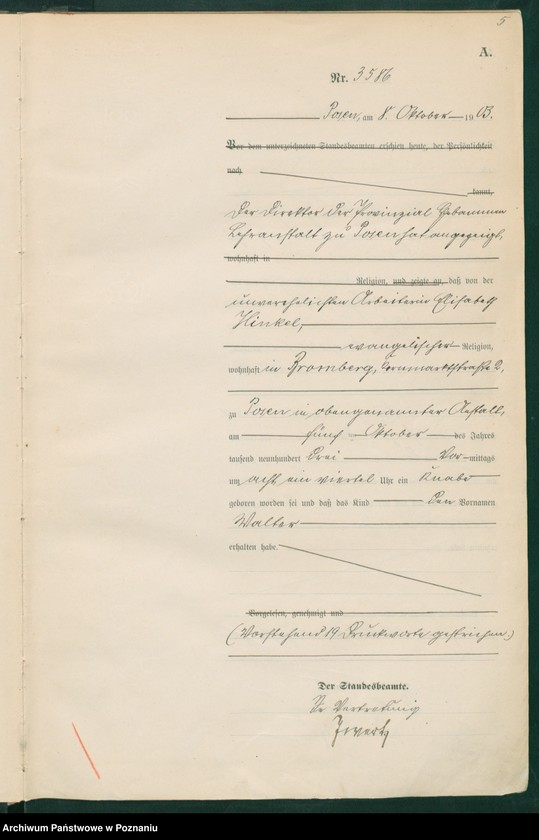 5
A.
Nr. 3586
Posen, am 8. Oktober 1903.
Vor dem unterzeichneten Standesbeamten erschien heute, der Persönlichkeit
nach
kannt,
Der Direktor der Provinzial Hebammen
Lehranstalt zu Posen hat angezeigt,
wohnhaft in
Religion, und zeigte an, daß von der
unverehelichten Arbeiterin Elisabeth
Hinkel,
evangelischer Religion,
wohnhaft in Bromberg, Kornmarktstraße 2,
zu Posen in obengenannter Anstalt,
am fünf Oktober des Jahres
tausend neunhundert drei Vor-mittags
um acht ein viertel Uhr ein Knabe
geboren worden sei und daß das Kind den Vornamen
Walter
erhalten habe.
Vorgelesen, genehmigt und
(Vorstehend 19 Druckworte gestrichen.)
Der Standesbeamte.
In Vertretung
Archiwum Państwowe w Poznaniu